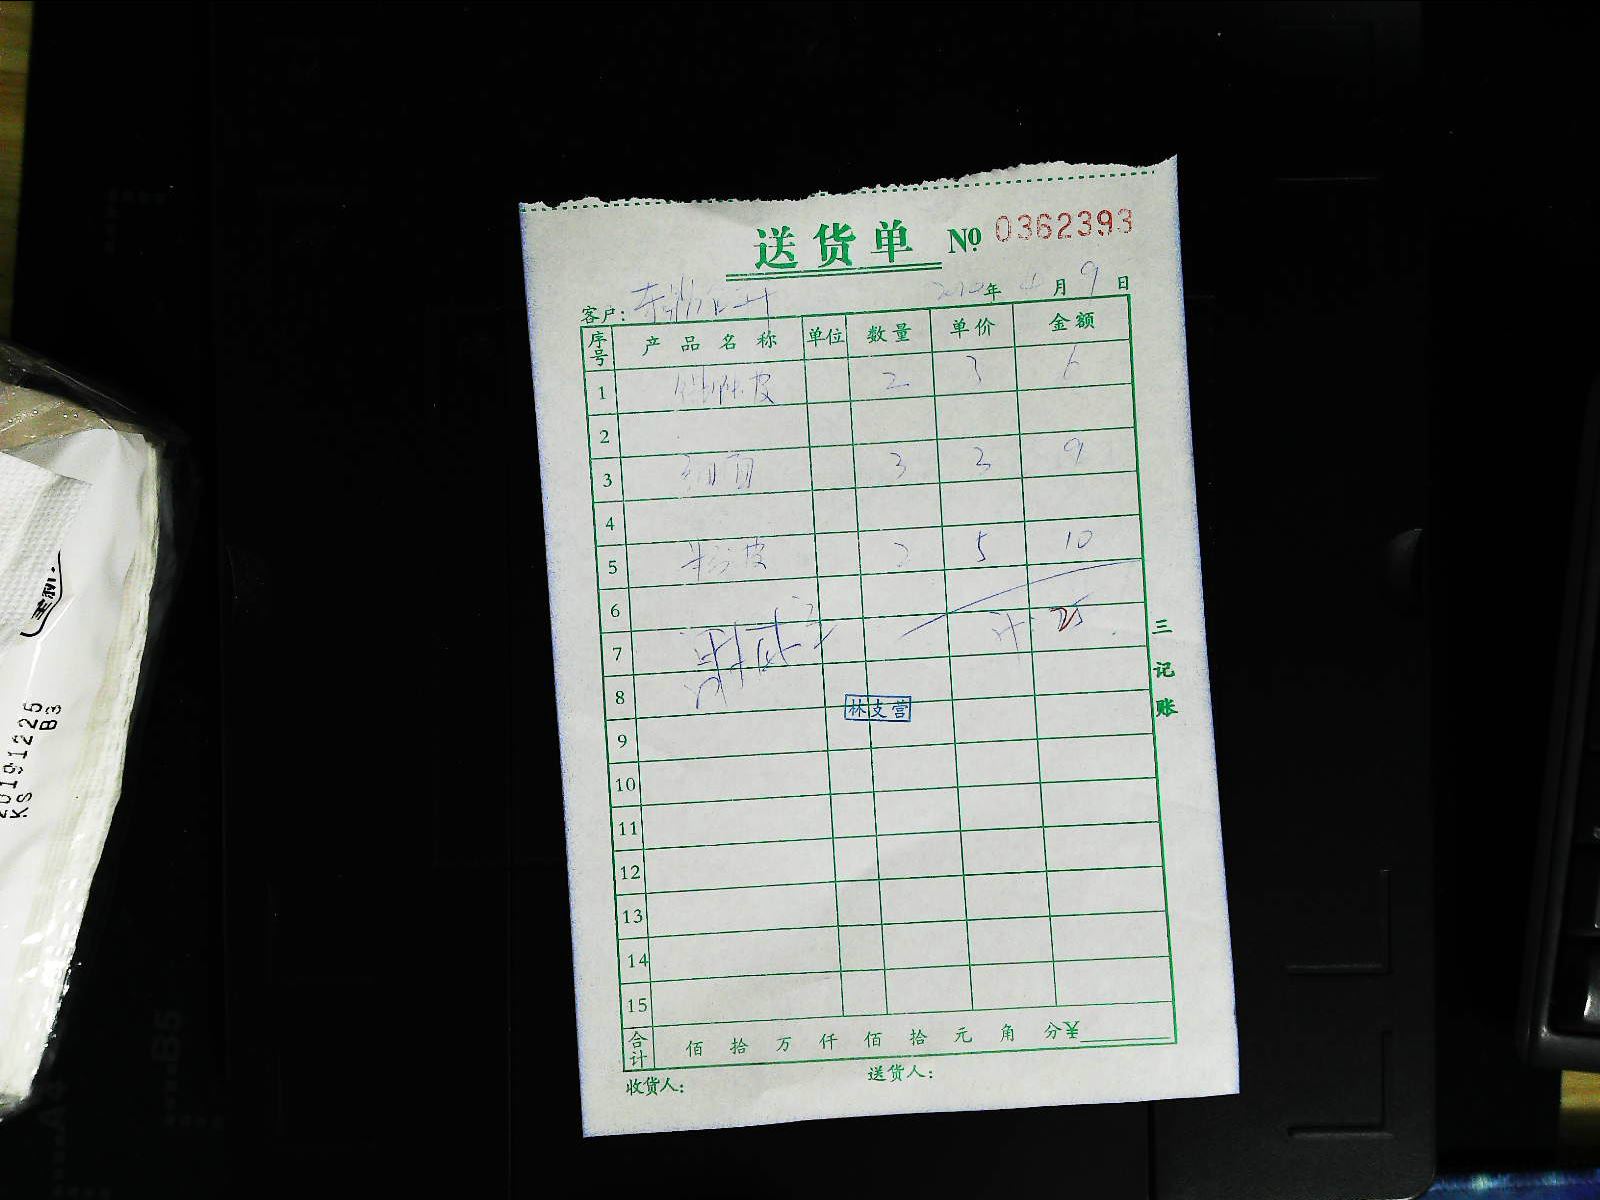 送货单 № 0362393
客户: 2020年 4月 9日
序号 产品名称 单位 数量 单价 金额
1 2 3 6
2
3 3 3 9
4
5 皮 2 5 10
6
7 计 25
8
林支营
9
10
11
12
13
14
15
合计 佰 拾 万 仟 佰 拾 元 角 分 ¥
收货人: 送货人:
三记账
20191225
KS B3
B5